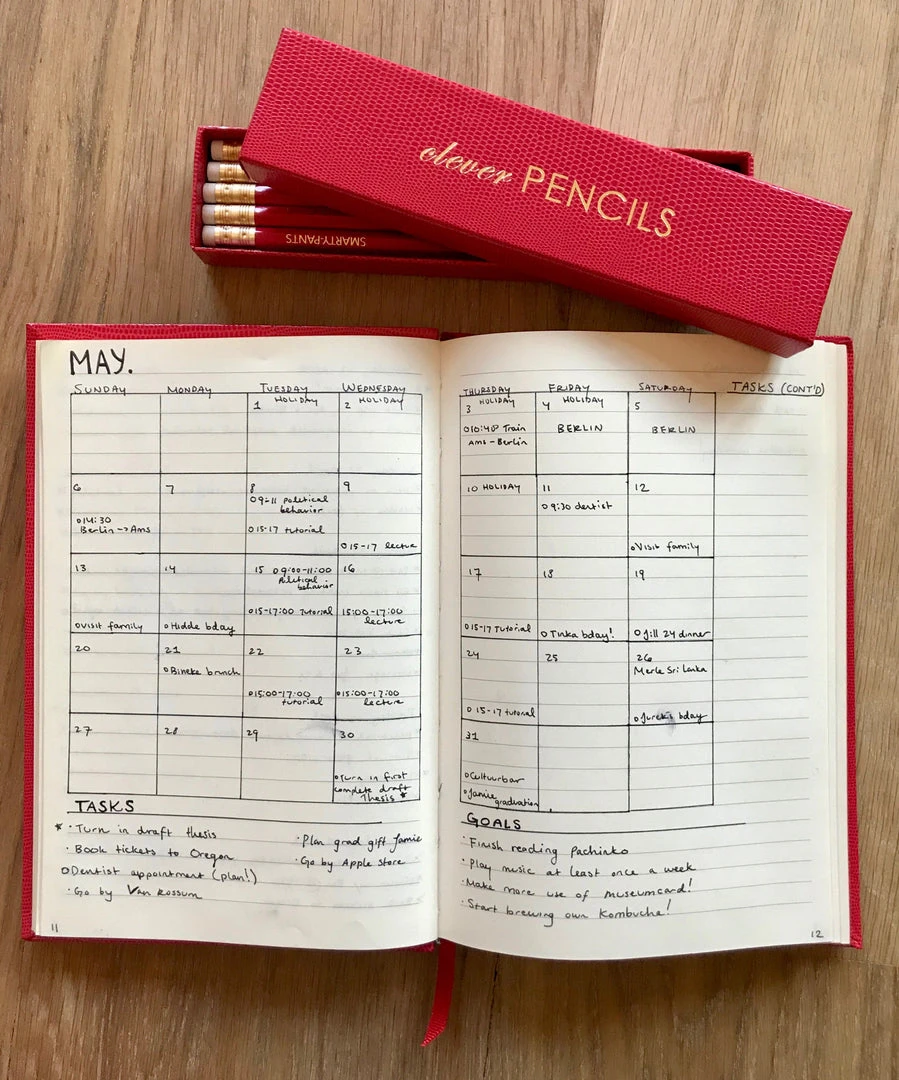 clever PENCILS
SMARTY-PANTS
MAY.
SUNDAY MONDAY TUESDAY WEDNESDAY
1 HOLIDAY
2 HOLIDAY
6
o14:30
Berlin → Ams
7
8
o9-11 political
behavior
o15-17 tutorial
9
o15-17 lecture
13
oVisit family
14
oHidde bday
15 o9:00-11:00
Political
behavior
o15-17:00 tutorial
16
15:00-17:00
lecture
20
21
oBineke brunch
22
o15:00-17:00
tutorial
23
o15:00-17:00
lecture
27
28
29
30
oTurn in first
complete draft
Thesis *
TASKS
* · Turn in draft thesis
· Book tickets to Oregon
oDentist appointment (plan!)
· Go by Van Rossum
· Plan grad gift Jamie
· Go by Apple store
11
THURSDAY FRIDAY SATURDAY TASKS (CONT'D)
3 HOLIDAY
Train
Ams - Berlin
4 HOLIDAY
BERLIN
5
BERLIN
10 HOLIDAY
11
o9:30 dentist
12
oVisit family
17
o15-17 tutorial
18
oTinka bday!
19
oJill 24 dinner
24
o15-17 tutorial
25
26
Merle Sri Lanka
oJurek's bday
31
oCultuurbar
oJamie
graduation
GOALS
· Finish reading Pachinko
· Play music at least once a week
· Make more use of museumcard!
· Start brewing own Kombucha!
12